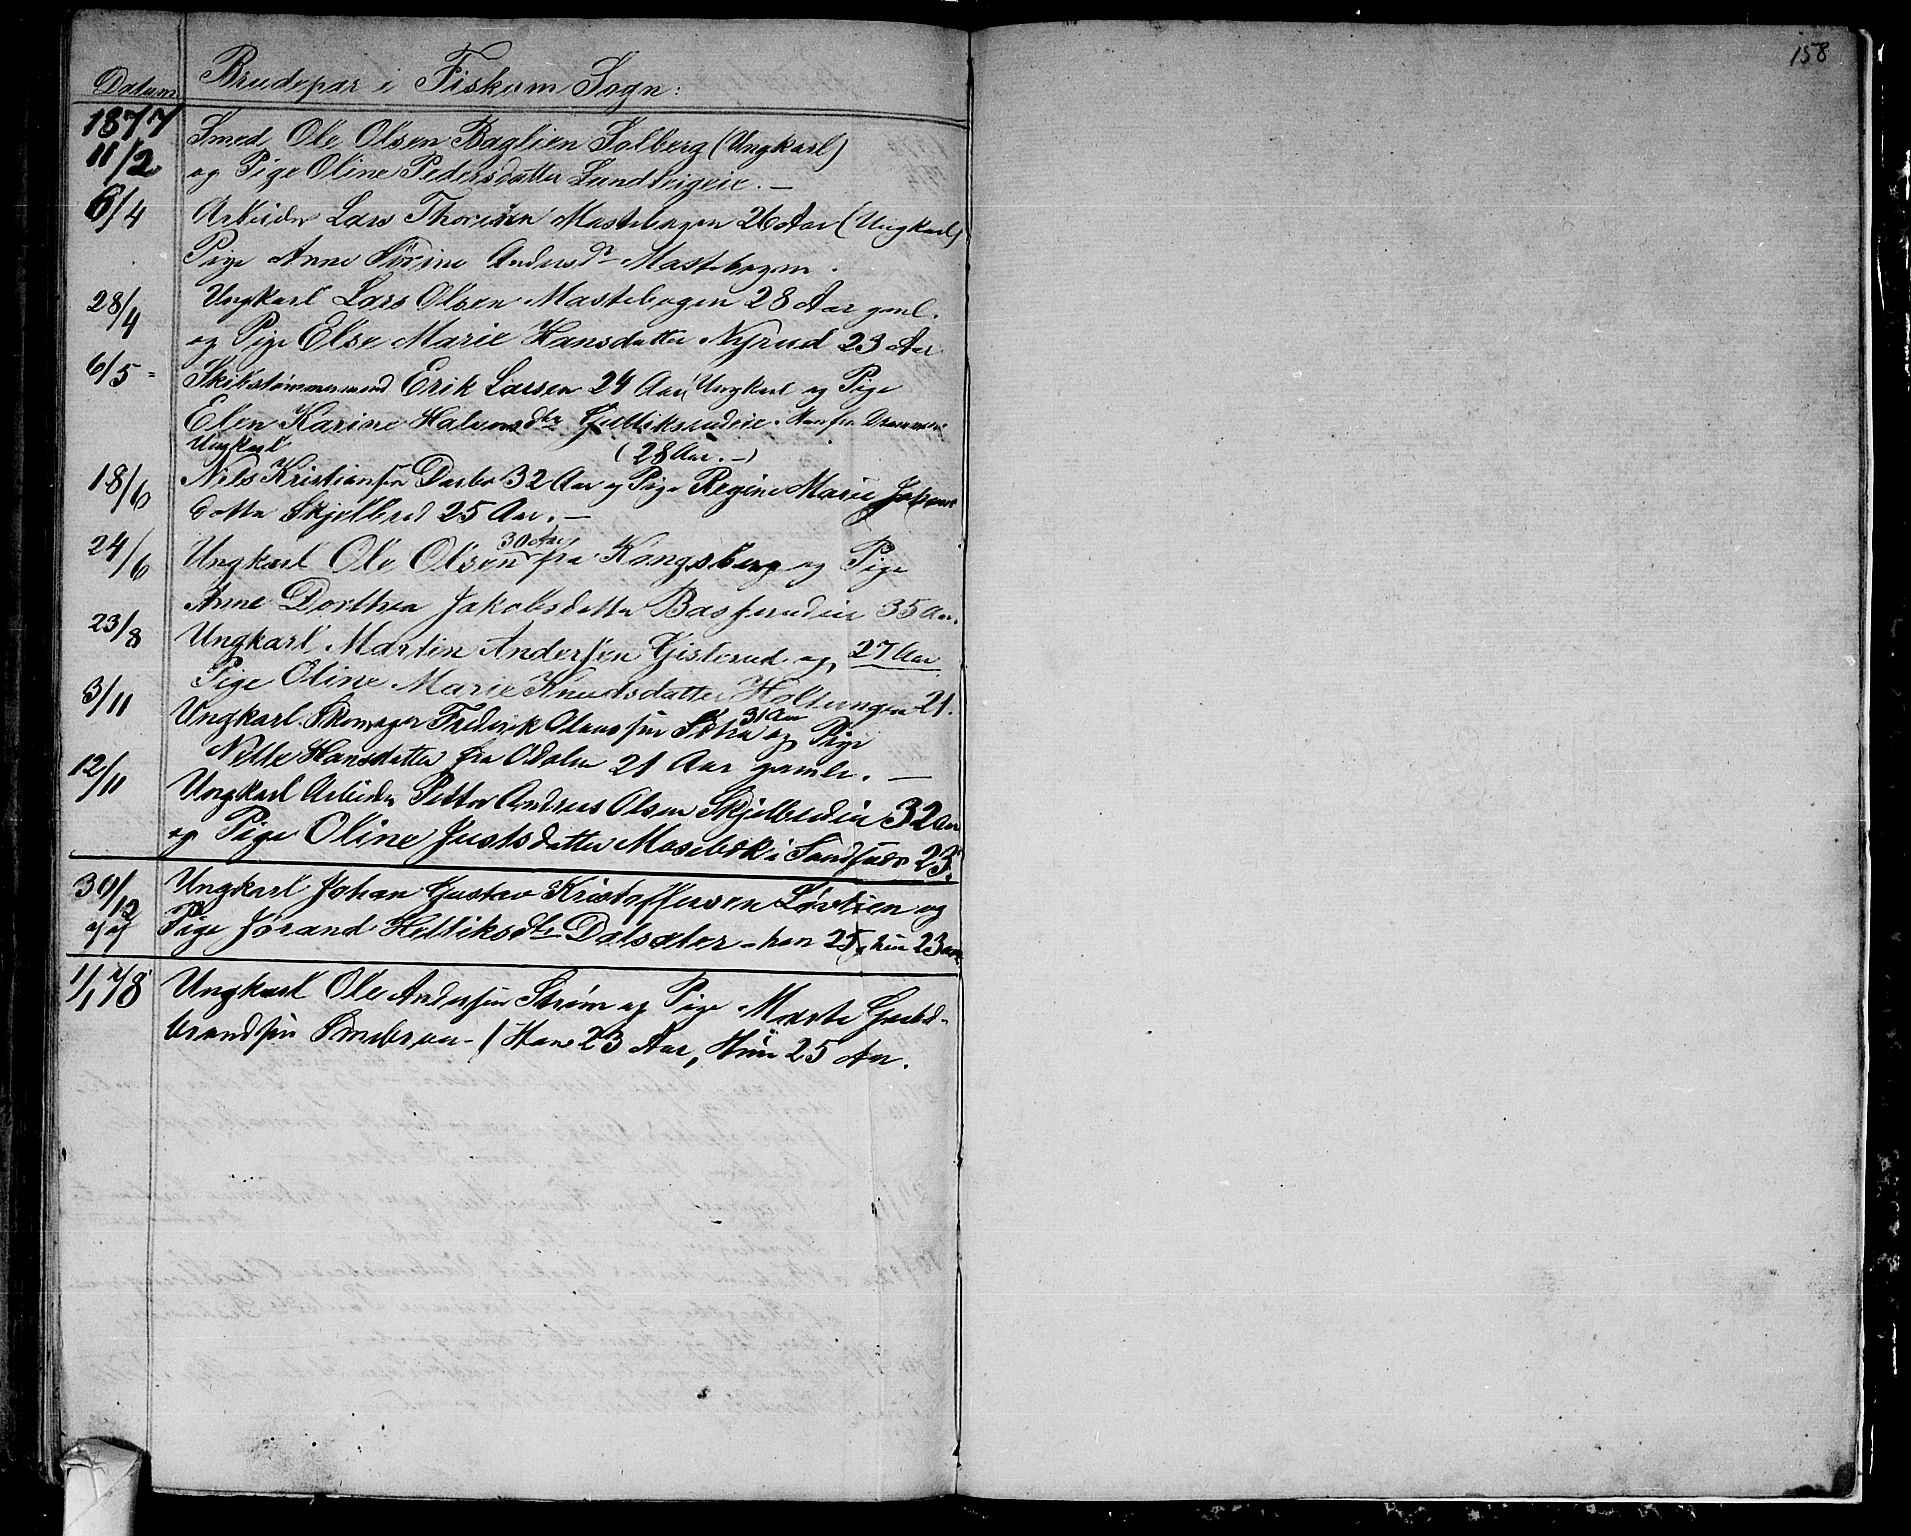 158
Datum Brudepar i Fiskum Sogn:
1877
11/2 Smed Ole Olsen Baglien Solberg (Ungkarl)
og Pige Oline Pedersdatter
6/4 Arbeider Lars Thoresen Mastebogen 26 Aar (Ungkarl)
Pige Anne Sørine Andersdr Mastebogen.
28/4 Ungkarl Lars Olsen Mastebogen 28 Aar gml.
og Pige Else Marie Hansdatter Nyrud 23 Aar
6/5 Skibstømmermand Erik Larsen 24 Aar Ungkarl og Pige
Elen Karine Gulliksrudeie. Han fra Drammen
Ungkarl (28 Aar.-)
18/6 Nils Kristiansen Darbo 32 Aar og Pige Regine Marie
datter Skjelbred 25 Aar. -
24/6 Ungkarl Ole Olsen 30 Aar fra Kongsberg og Pige
Anne Dorthea Jakobsdatter 35 Aar.
23/8 Ungkarl Martin Andersen og 27 Aar
Pige Oline Marie Knudsdatter 21.
3/11 Ungkarl Skomager Frederik 31 Aar og Pige
Hansdatter fra Odalen 21 Aar gamle. -
12/11 Ungkarl Arbeider Petter Andreas Olsen 32 Aar
og Pige Oline Justsdatter Mosebæk i 23.
30/12 Ungkarl Johan Gustav Kristoffersen og
Pige Jørand Helliksdtr Dalsæter - han 25, hun 23 aar
1/1 78 Ungkarl Ole Andersen Strøm og Pige Marte Guld-
brandsen - (Han 23 Aar, Hun 25 Aar.